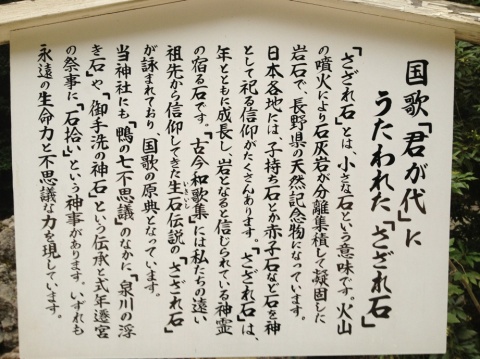 国歌「君が代」に
うたわれた「さざれ石」
「さざれ石」とは、小さな石という意味です。火山
の噴火により石灰岩が分離集積して凝固した
岩石で、長野県の天然記念物になっています。
日本各地には子持ち石とか赤子石など石を神
として祀る信仰がたくさんあります。「さざれ石」は、
年とともに成長し、岩となると信じられている神霊
の宿る石です。「古今和歌集」には私たちの遠い
祖先から信仰してきた生石伝説の「さざれ石」
いきいし
が詠まれており、国歌の原典となっています。
当神社にも「鴨の七不思議」のなかに「泉川の浮
き石」や、「御手洗の神石」という伝承と式年遷宮
の祭事に「石拾い」という神事があります。いずれも
永遠の生命力と不思議な力を現しています。